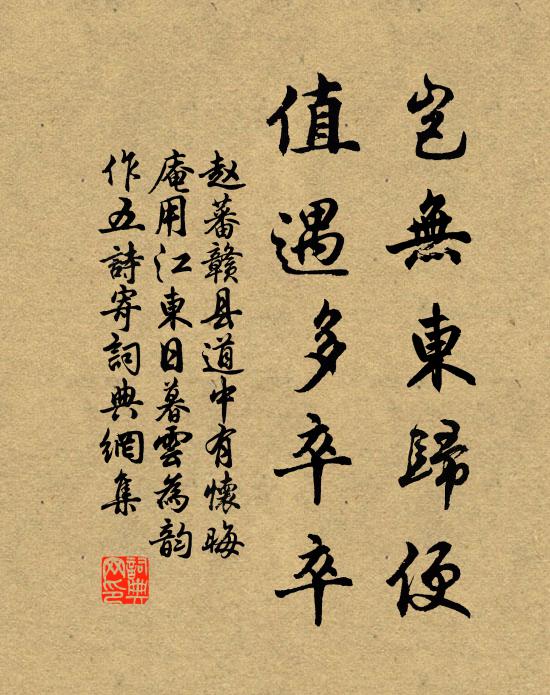 豈無東歸便
值遇多卒卒
赵蕃贛县道中有懷晦
庵用江東日暮雲為韵
作五詩寄詞典網集
詞典
网印